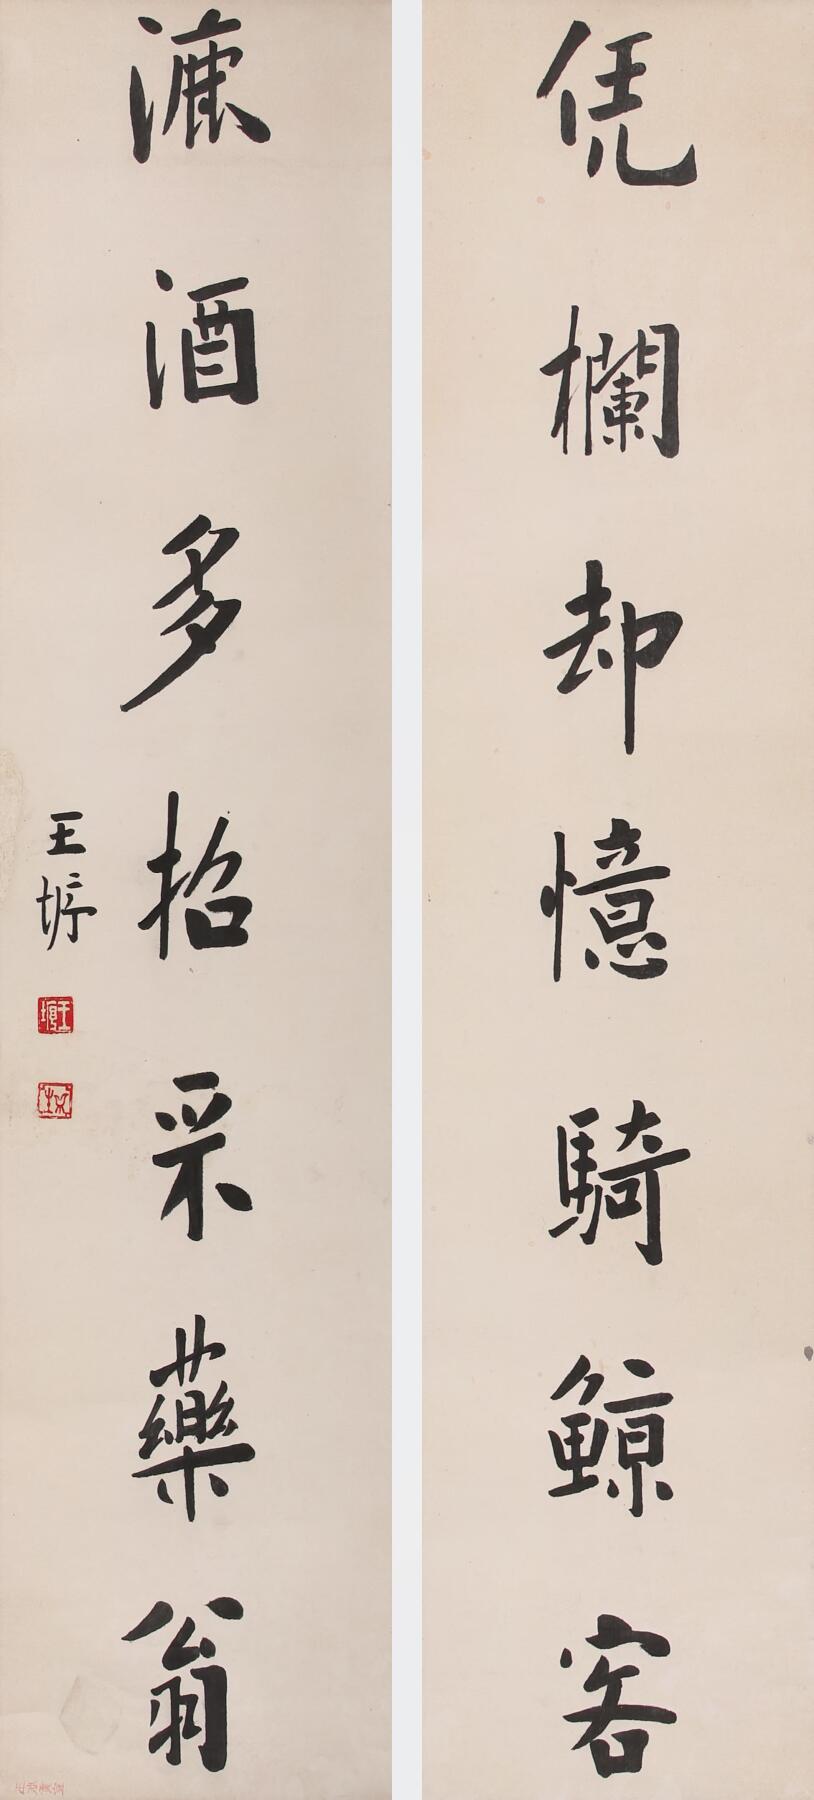 凭欄却憶騎鯨客
漉酒多招采藥翁
王垿
王垿